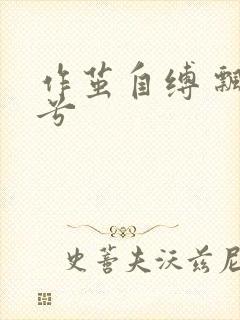 作茧自缚 飘
兮
史蒂夫沃兹尼